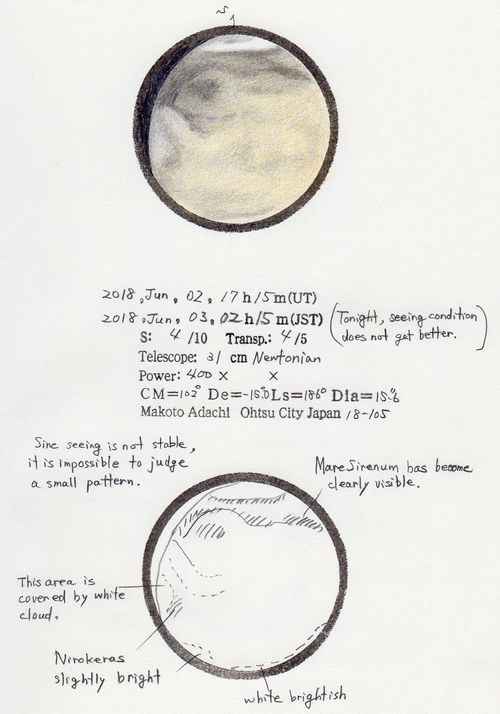 S
2018, Jun, 02, 17h15m(UT)
2018, Jun, 03, 02h15m(JST)
(Tonight, seeing condition
does not get better.)
S: 4/10 Transp.: 4/5
Telescope: 31 cm Newtonian
Power: 400× ×
CM=102° De=-15.°0 Ls=186° Dia=15."6
Makoto Adachi Ohtsu City Japan 18-105
Sine seeing is not stable,
it is impossible to judge
a small pattern.
Mare Sirenum has become
clearly visible.
This area is
covered by white
cloud.
Nirokeras
slightly bright
white brightish